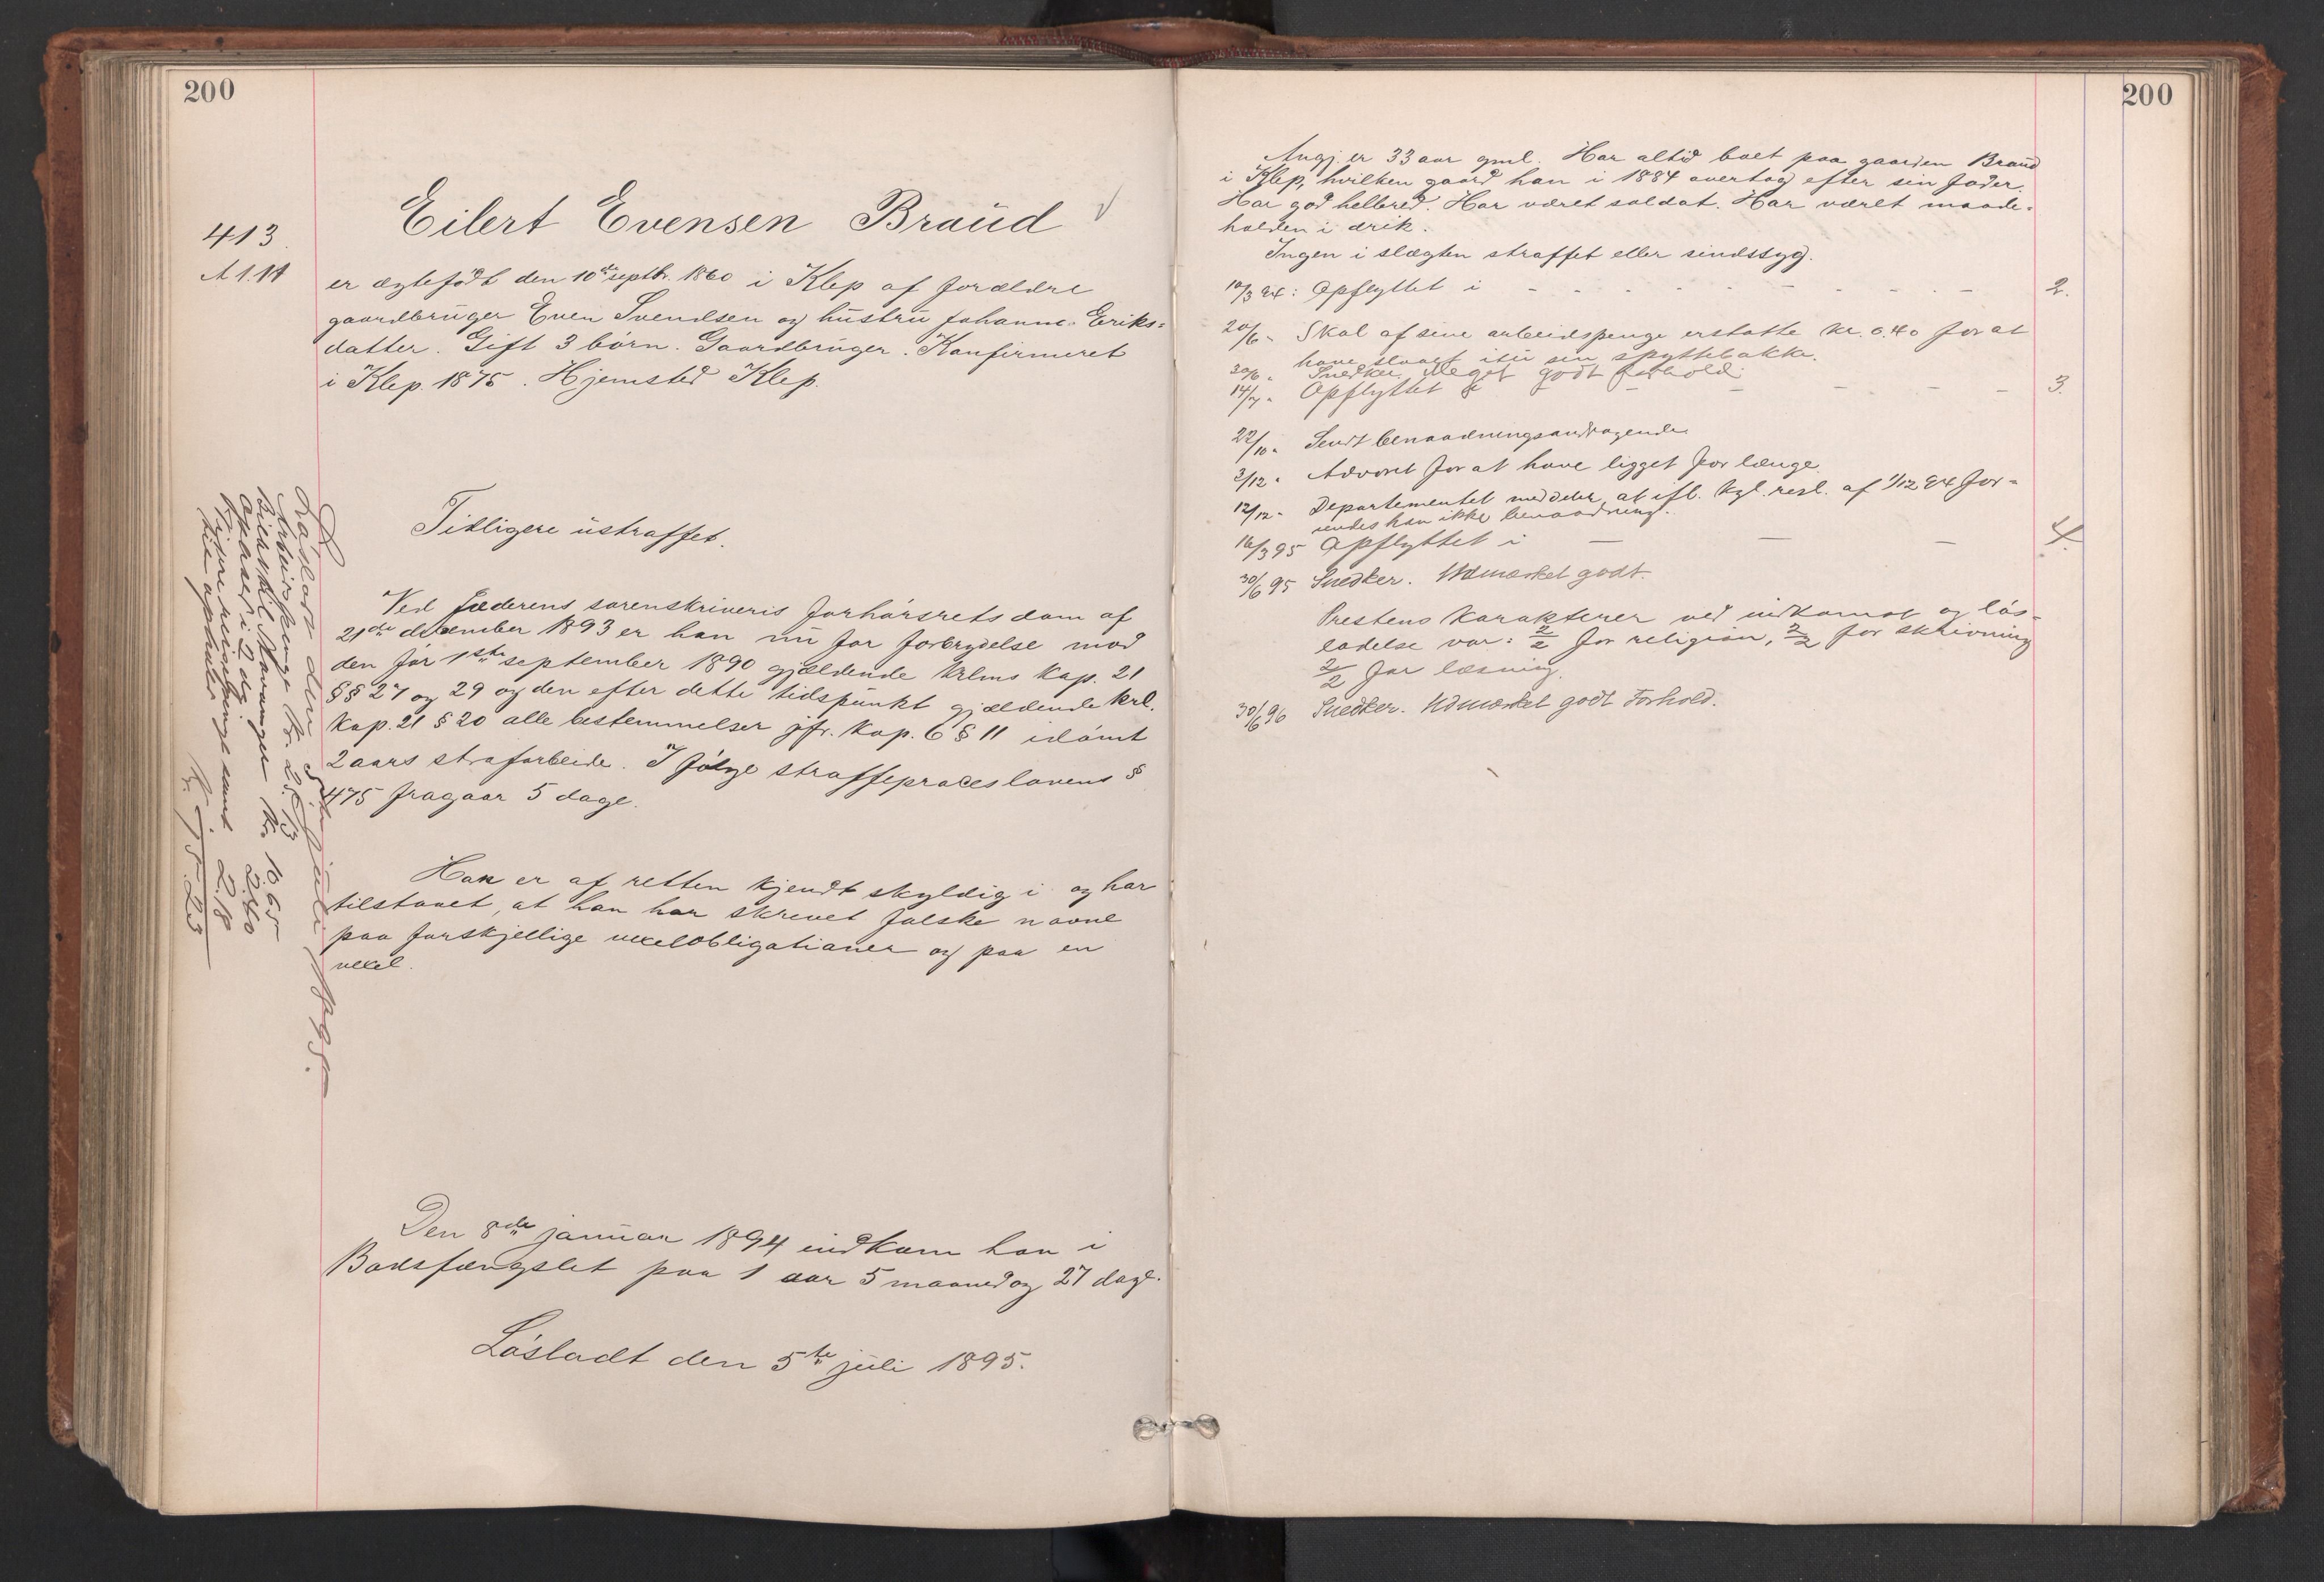 200
413.
A 1.11
Eilert Evensen Braud
er ægtefødt den 10de septbr. 1860 i Klep af forældre
gaardbruger Even Svendsen og hustru Johanne Eriks=
datter. Gift 3 børn. Gaardbruger. Konfirmeret
i Klep 1875. Hjemsted Klep.
Tidligere ustraffet.
Ved Jæderens sorenskriveris forhørsrets dom af
21de december 1893 er han nu for forbrydelse mod
den før 1ste september 1890 gjældende krlms kap. 21
§§ 27 og 29 og den efter dette tidspunkt gjældende krl.
kap. 21 § 20 alle bestemmelser jfr. kap. 6 § 11 idømt
2 aars strafarbeide. I følge straffeproceslovens §
475 fragaar 5 dage.
Han er af retten kjendt skyldig i og har
tilstaaet, at han har skrevet falske navne
paa forskjellige vexelobligationer og paa en
vexel.
Den 8de januar 1894 indkom han i
Bodsfængslet paa 1 aar 5 maaned og 27 dage.
Løsladt den 5te juli 1895.
Løsladt den 5te juli 1895.
Arbeidspenge kr. 25.13
Billet til Stavanger kr. 16.65
Ophold i 2 dg. 2.60
2.18
200
Angj. er 33 aar gml. Har altid boet paa gaarden Braud
i Klep, hvilken gaard han i 1884 overtog efter sin fader.
Har god helbred. Har været soldat. Har været maade=
holden i drik.
Ingen i slægten straffet eller sindssyg.
10/3 94: Opflyttet i - - - - - - - - 2.
20/6 " Skal af sine arbeidspenge erstatte kr. 0.40 for at
have slaaet itu sin spyttebakke.
30/6 " Snedker. Meget godt forhold.
14/7 " Opflyttet i - - - - - 3.
22/10 " Sendt benaadningsandragende.
3/12 " Advaret for at have ligget for længe.
12/12 " Departementet meddeler, at ifl. kgl. resl. af 1/12 94 for=
undes han ikke benaadning.
16/3 95 Opflyttet i - - - 4.
30/6 95 Snedker. Udmærket godt.
Prestens karakterer ved indkomst og løs=
ladelse var: 2/2 for religion, 2/2 for skrivning
2/2 for læsning.
30/6 96 Snedker. Udmærket godt Forhold.